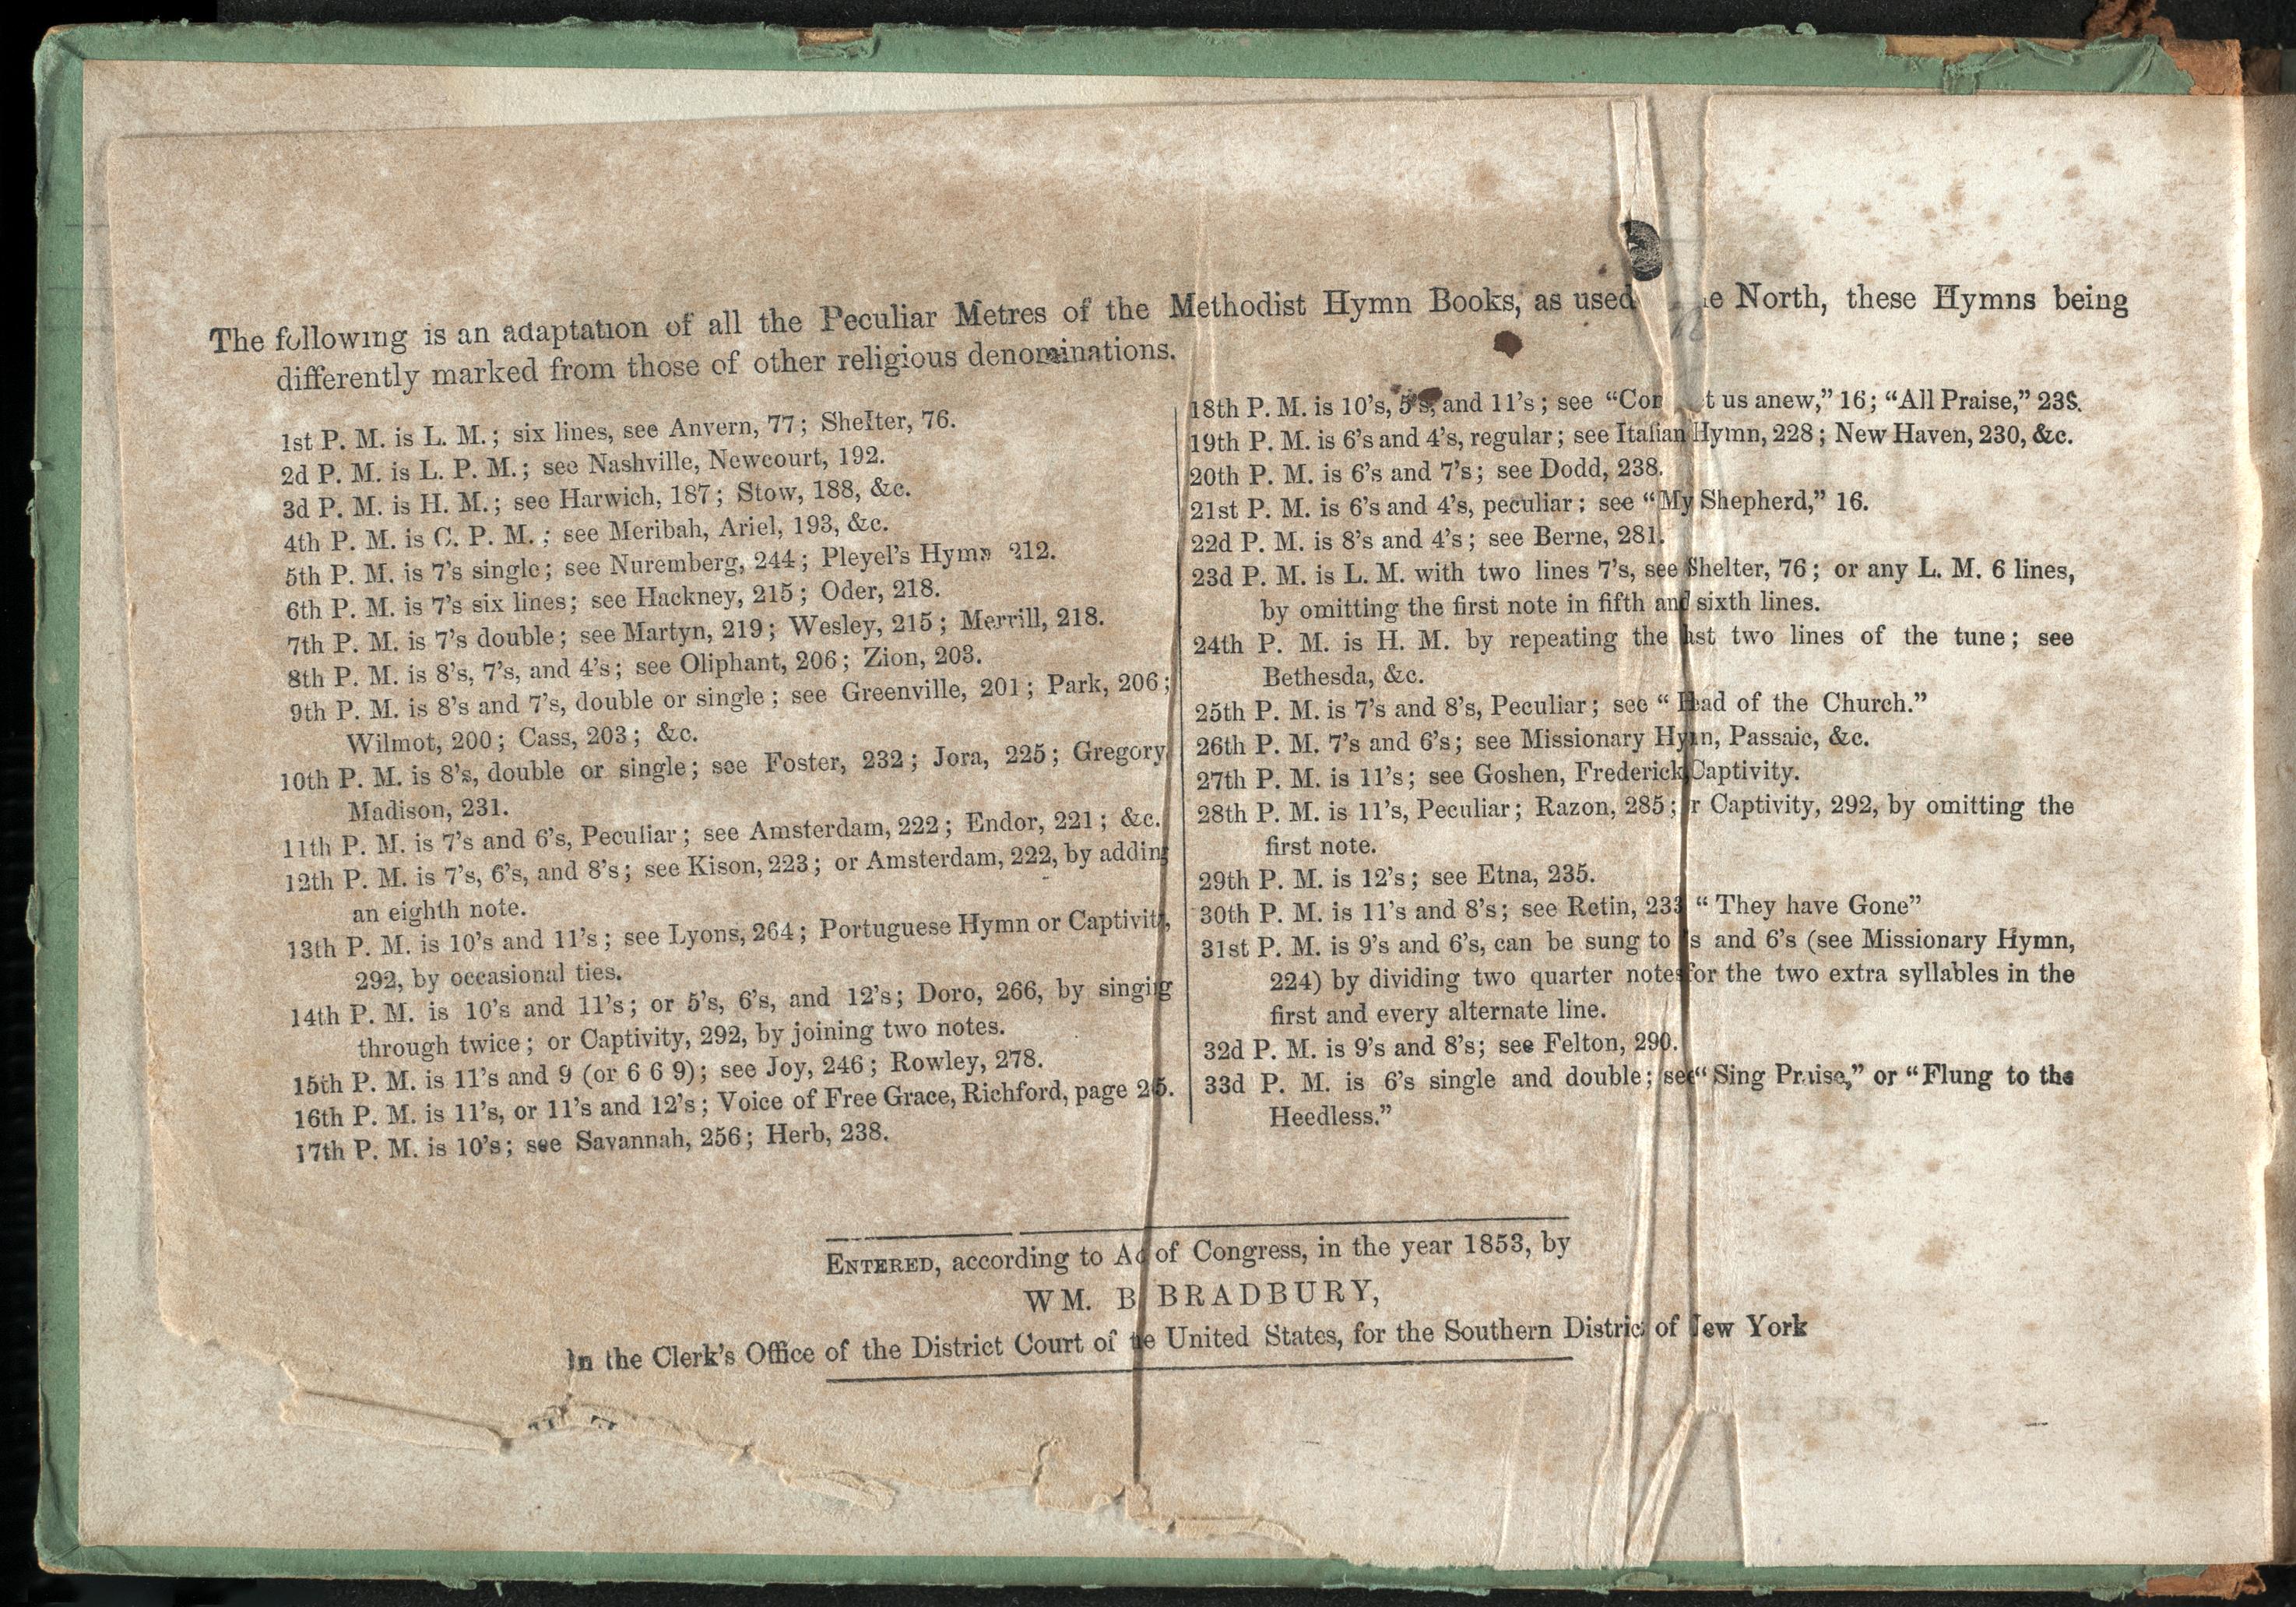 The following is an adaptation of all the Peculiar Metres of the Methodist Hymn Books, as used e North, these Hymns being
differently marked from those of other religious denominations.
1st P. M. is L. M.; six lines, see Anvern, 77; Shelter, 76.
2d P. M. is L. P. M.; see Nashville, Newcourt, 192.
3d P. M. is H. M.; see Harwich, 187; Stow, 188, &c.
4th P. M. is C. P. M.; see Meribah, Ariel, 193, &c.
5th P. M. is 7's single; see Nuremberg, 244; Pleyel's Hymn 212.
6th P. M. is 7's six lines; see Hackney, 215; Oder, 218.
7th P. M. is 7's double; see Martyn, 219; Wesley, 215; Merrill, 218.
8th P. M. is 8's, 7's, and 4's; see Oliphant, 206; Zion, 203.
9th P. M. is 8's and 7's, double or single; see Greenville, 201; Park, 206;
Wilmot, 200; Cass, 203; &c.
10th P. M. is 8's, double or single; see Foster, 232; Jora, 225; Gregory
Madison, 231.
11th P. M. is 7's and 6's, Peculiar; see Amsterdam, 222; Endor, 221; &c.
12th P. M. is 7's, 6's, and 8's; see Kison, 223; or Amsterdam, 222, by adding
an eighth note.
13th P. M. is 10's and 11's; see Lyons, 264; Portuguese Hymn or Captivity,
292, by occasional ties.
14th P. M. is 10's and 11's; or 5's, 6's, and 12's; Doro, 266, by singing
through twice; or Captivity, 292, by joining two notes.
15th P. M. is 11's and 9 (or 6 6 9); see Joy, 246; Rowley, 278.
16th P. M. is 11's, or 11's and 12's; Voice of Free Grace, Richford, page
17th P. M. is 10's; see Savannah, 256; Herb, 238.
18th P. M. is 10's, 5's, and 11's; see "Co t us anew," 16; "All Praise," 238.
19th P. M. is 6's and 4's, regular; see Italian Hymn, 228; New Haven, 230, &c.
20th P. M. is 6's and 7's; see Dodd, 238.
21st P. M. is 6's and 4's, peculiar; see "My Shepherd," 16.
22d P. M. is 8's and 4's; see Berne, 281.
23d P. M. is L. M. with two lines 7's, see Shelter, 76; or any L. M. 6 lines,
by omitting the first note in fifth and sixth lines.
24th P. M. is H. M. by repeating the last two lines of the tune; see
Bethesda, &c.
25th P. M. is 7's and 8's, Peculiar; see "Head of the Church."
26th P. M. 7's and 6's; see Missionary Hymn, Passaic, &c.
27th P. M. is 11's; see Goshen, Frederick Captivity.
28th P. M. is 11's, Peculiar; Razon, 285; or Captivity, 292, by omitting the
first note.
29th P. M. is 12's; see Etna, 235.
30th P. M. is 11's and 8's; see Retin, 233 "They have Gone"
31st P. M. is 9's and 6's, can be sung to 's and 6's (see Missionary Hymn,
224) by dividing two quarter notes for the two extra syllables in the
first and every alternate line.
32d P. M. is 9's and 8's; see Felton, 290.
33d P. M. is 6's single and double; see "Sing Praise," or "Flung to the
Heedless."
ENTERED, according to Act of Congress, in the year 1853, by
WM. B. BRADBURY,
In the Clerk's Office of the District Court of the United States, for the Southern District of New York